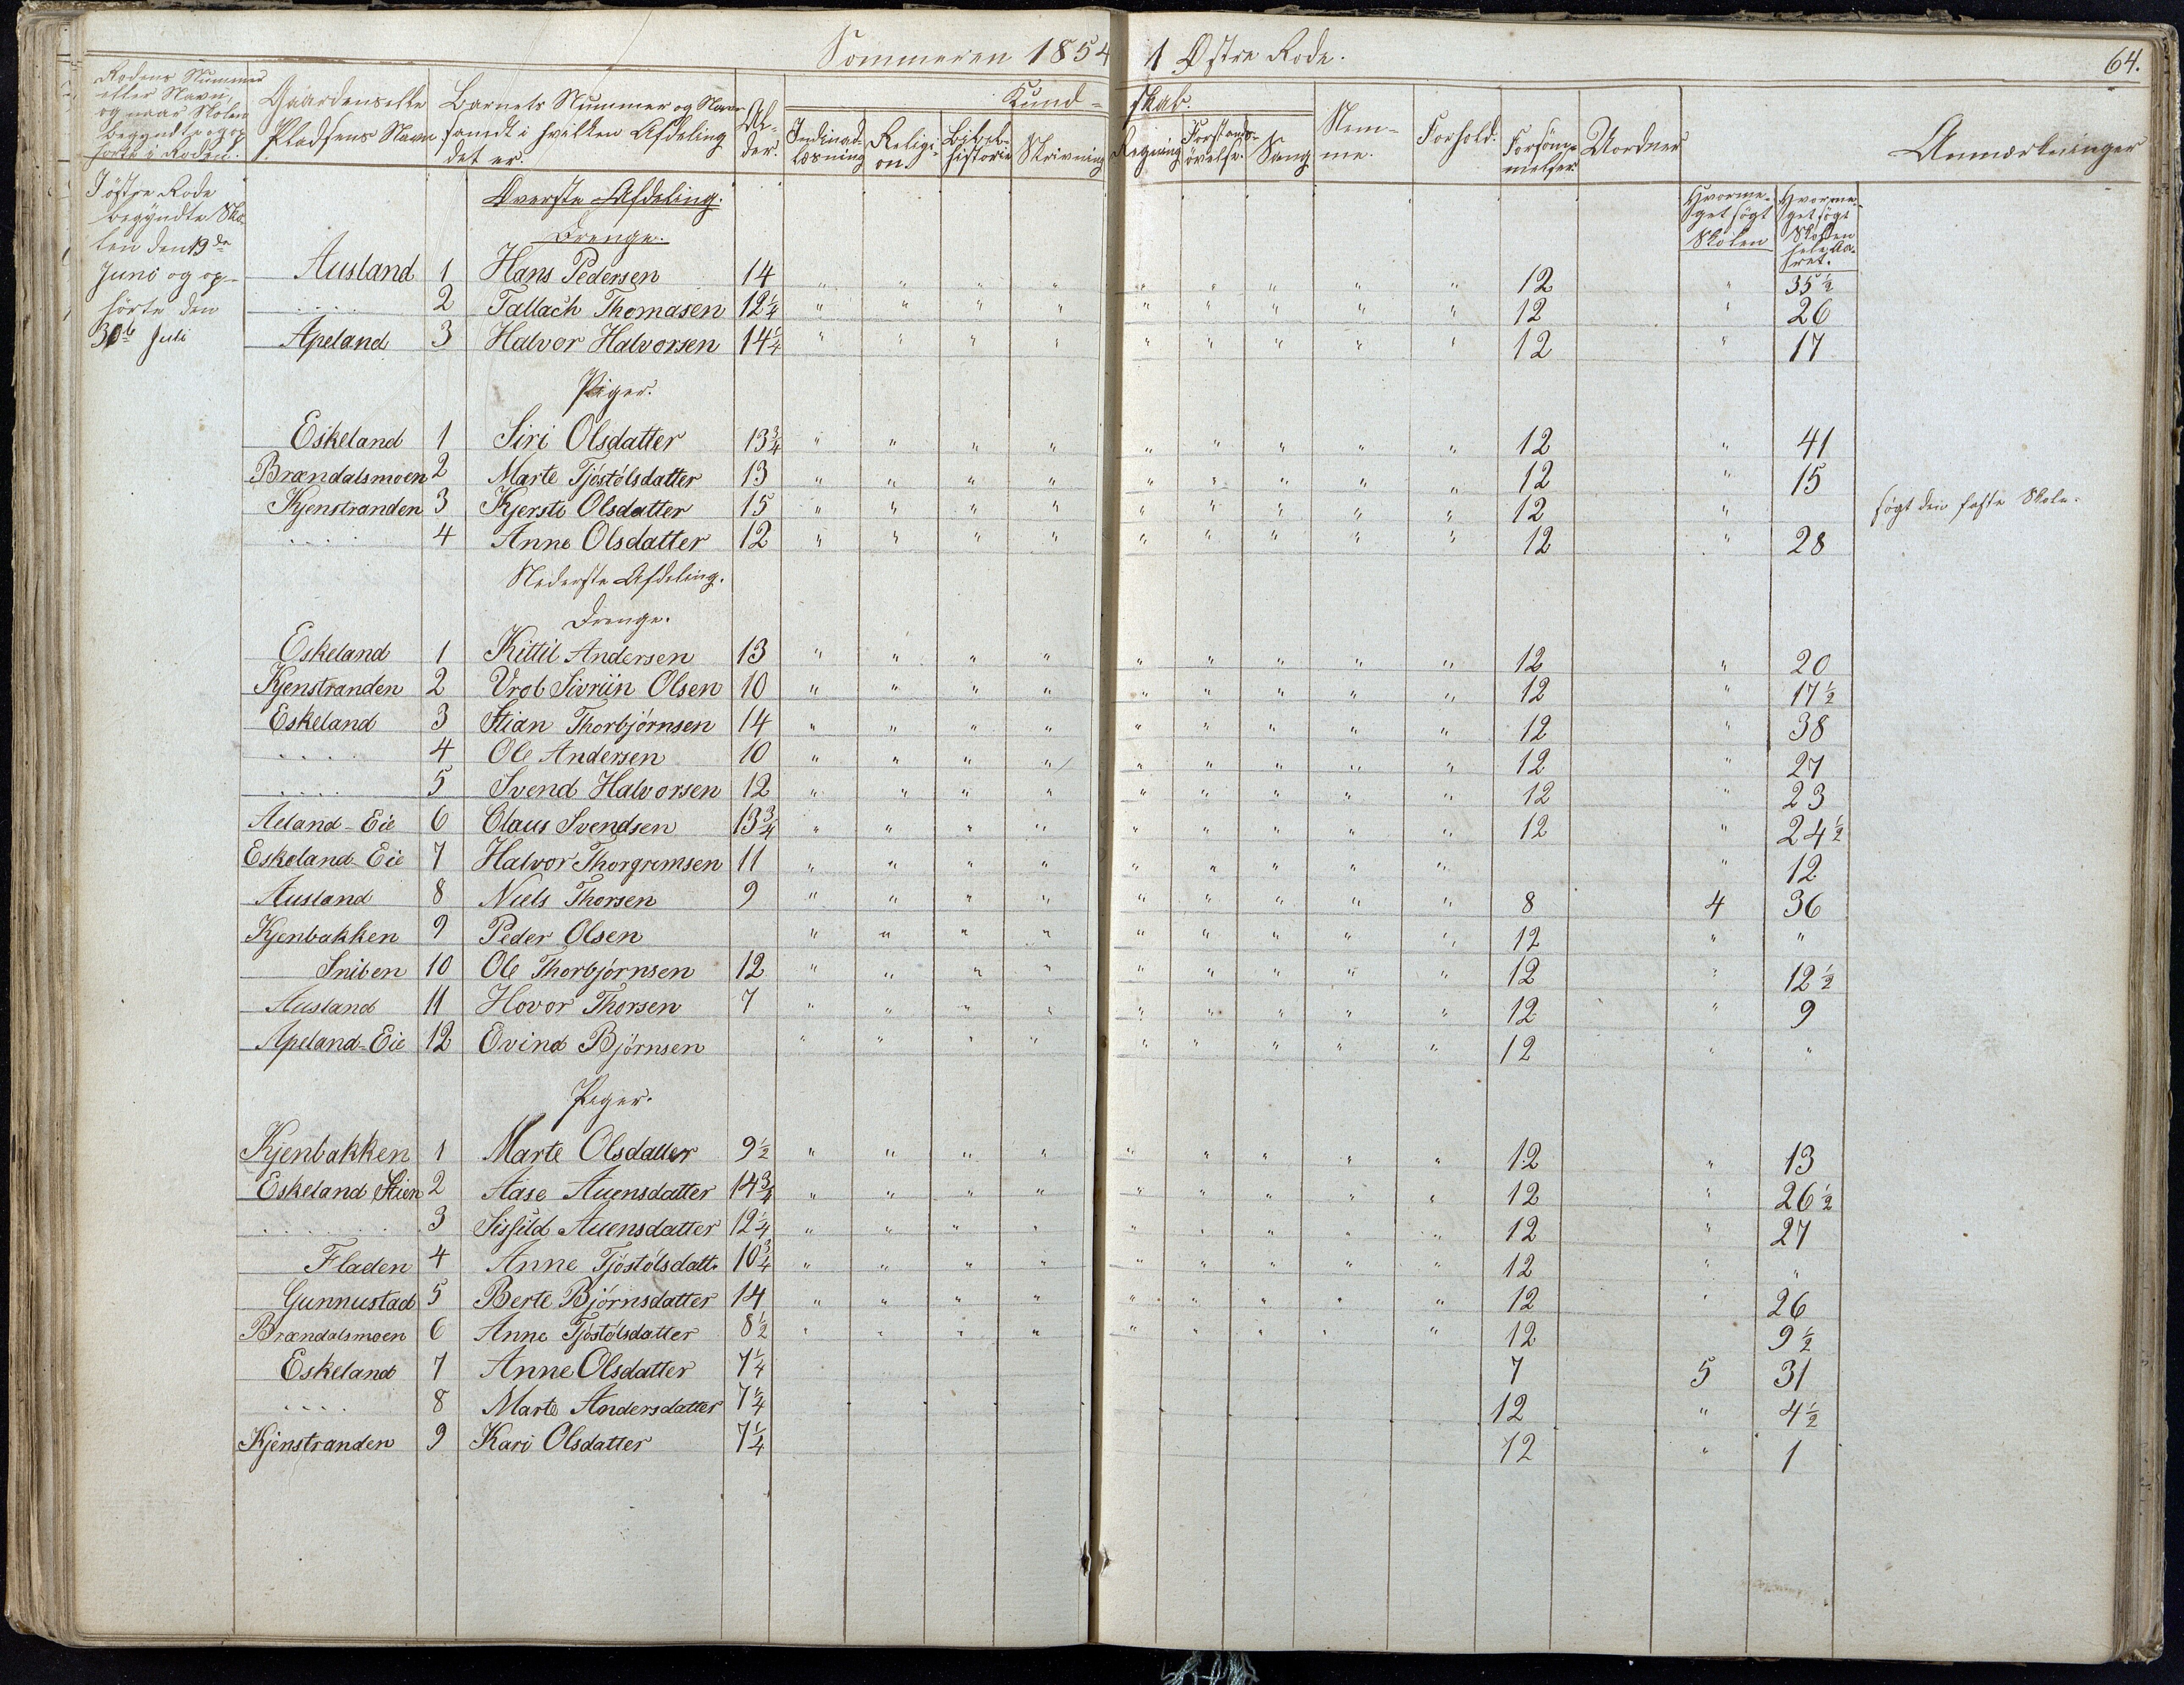 Sommeren 1854 1 Østre Rode. 64.
Rodens Nummer eller Navn, og naar Skolen begyndte og ophørte i Roden. | Gaardens eller Pladsens Navn | Barnets Nummer og Navn samdt i hvilken Afdeling det er. | Alder. | Kundskab. | Nemme. | Forhold. | Forsømmelser. | Uordner | Anmærkninger
Indenadlæsning | Religion | Bibelhistorie | Skrivning | Regning | Forstandsøvelse | Sang
Hvormeget søgt Skolen | Hvormeget søgt Skolen hele Aaret.
I østre Rode
begyndte Sko-
len den 19de
Juni og op-
hørte den
30te Juli
Øverste Afdeling.
Drenge.
Ausland 1 Hans Pedersen 14 " " " " " " " " " 12 " 35½
.... 2 Tallach Thomasen 12¼ " " " " " " " " " 12 " 26
Apeland 3 Halvor Halvorsen 14¼ " " " " " " " " " 12 " 17
Piger.
Eskeland 1 Siri Olsdatter 13¾ " " " " " " " " " 12 " 41
Brændalsmoen 2 Marte Tjöstölsdatter 13 " " " " " " " " " 12 " 15
Kjenstranden 3 Kjersti Olsdatter 15 " " " " " " " " " 12 " søgt den faste Skole.
.... 4 Anne Olsdatter 12 " " " " " " " " " 12 " 28
Nederste Afdeling.
Drenge.
Eskeland 1 Kittil Andersen 13 " " " " " " " " " 12 " 20
Kjenstranden 2 Vrol Sivriin Olsen 10 " " " " " " " " " 12 " 17½
Eskeland 3 Stian Thorbjörnsen 14 " " " " " " " " " 12 " 38
.... 4 Ole Andersen 10 " " " " " " " " " 12 " 27
.... 5 Svend Halvorsen 12 " " " " " " " " " 12 " 23
Aeland-Eie 6 Claus Svendsen 13¾ " " " " " " " " " 12 " 24½
Eskeland-Eie 7 Halvor Thorgrimsen 11 " " " " " " " " " " 12
Ausland 8 Niels Thorsen 9 " " " " " " " " " 8 4 36
Kjenbakken 9 Peder Olsen " " " " " " " " " 12 " "
Sniben 10 Ole Thorbjörnsen 12 " " " " " " " " " 12 " 12½
Ausland 11 Hovor Thorsen 7 " " " " " " " " " 12 " 9
Apeland-Eie 12 Evind Björnsen " " " " " " " " " 12 " "
Piger.
Kjenbakken 1 Marte Olsdatter 9½ " " " " " " " " " 12 " 13
Eskeland Stien 2 Aase Auensdatter 14¾ " " " " " " " " " 12 " 26½
.... 3 Auensdatter 12¼ " " " " " " " " " 12 " 27
Fladen 4 Anne Tjöstölsdatt. 10¾ " " " " " " " " " 12 " "
Gunnustad 5 Berte Björnsdatter 14 " " " " " " " " " 12 " 26
Brændalsmoen 6 Anne Tjöstölsdatter 8½ " " " " " " " " " 12 9½
Eskeland 7 Anne Olsdatter 7¼ 7 5 31
.... 8 Marte Andersdatter 7¼ 12 " 4½
Kjenstranden 9 Kari Olsdatter 7¼ 12 " 1